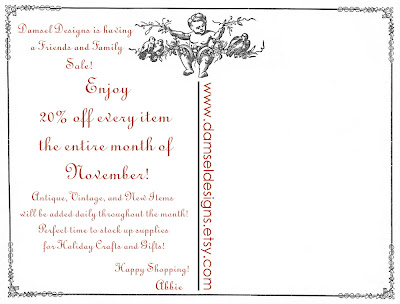 Damsel Designs is having
a Friends and Family
Sale!
Enjoy
20% off every item
the entire month of
November!
Antique, Vintage, and New Items
will be added daily throughout the month!
Perfect time to stock up supplies
for Holiday Crafts and Gifts!
Happy Shopping!
Abbie
www.damseldesigns.etsy.com